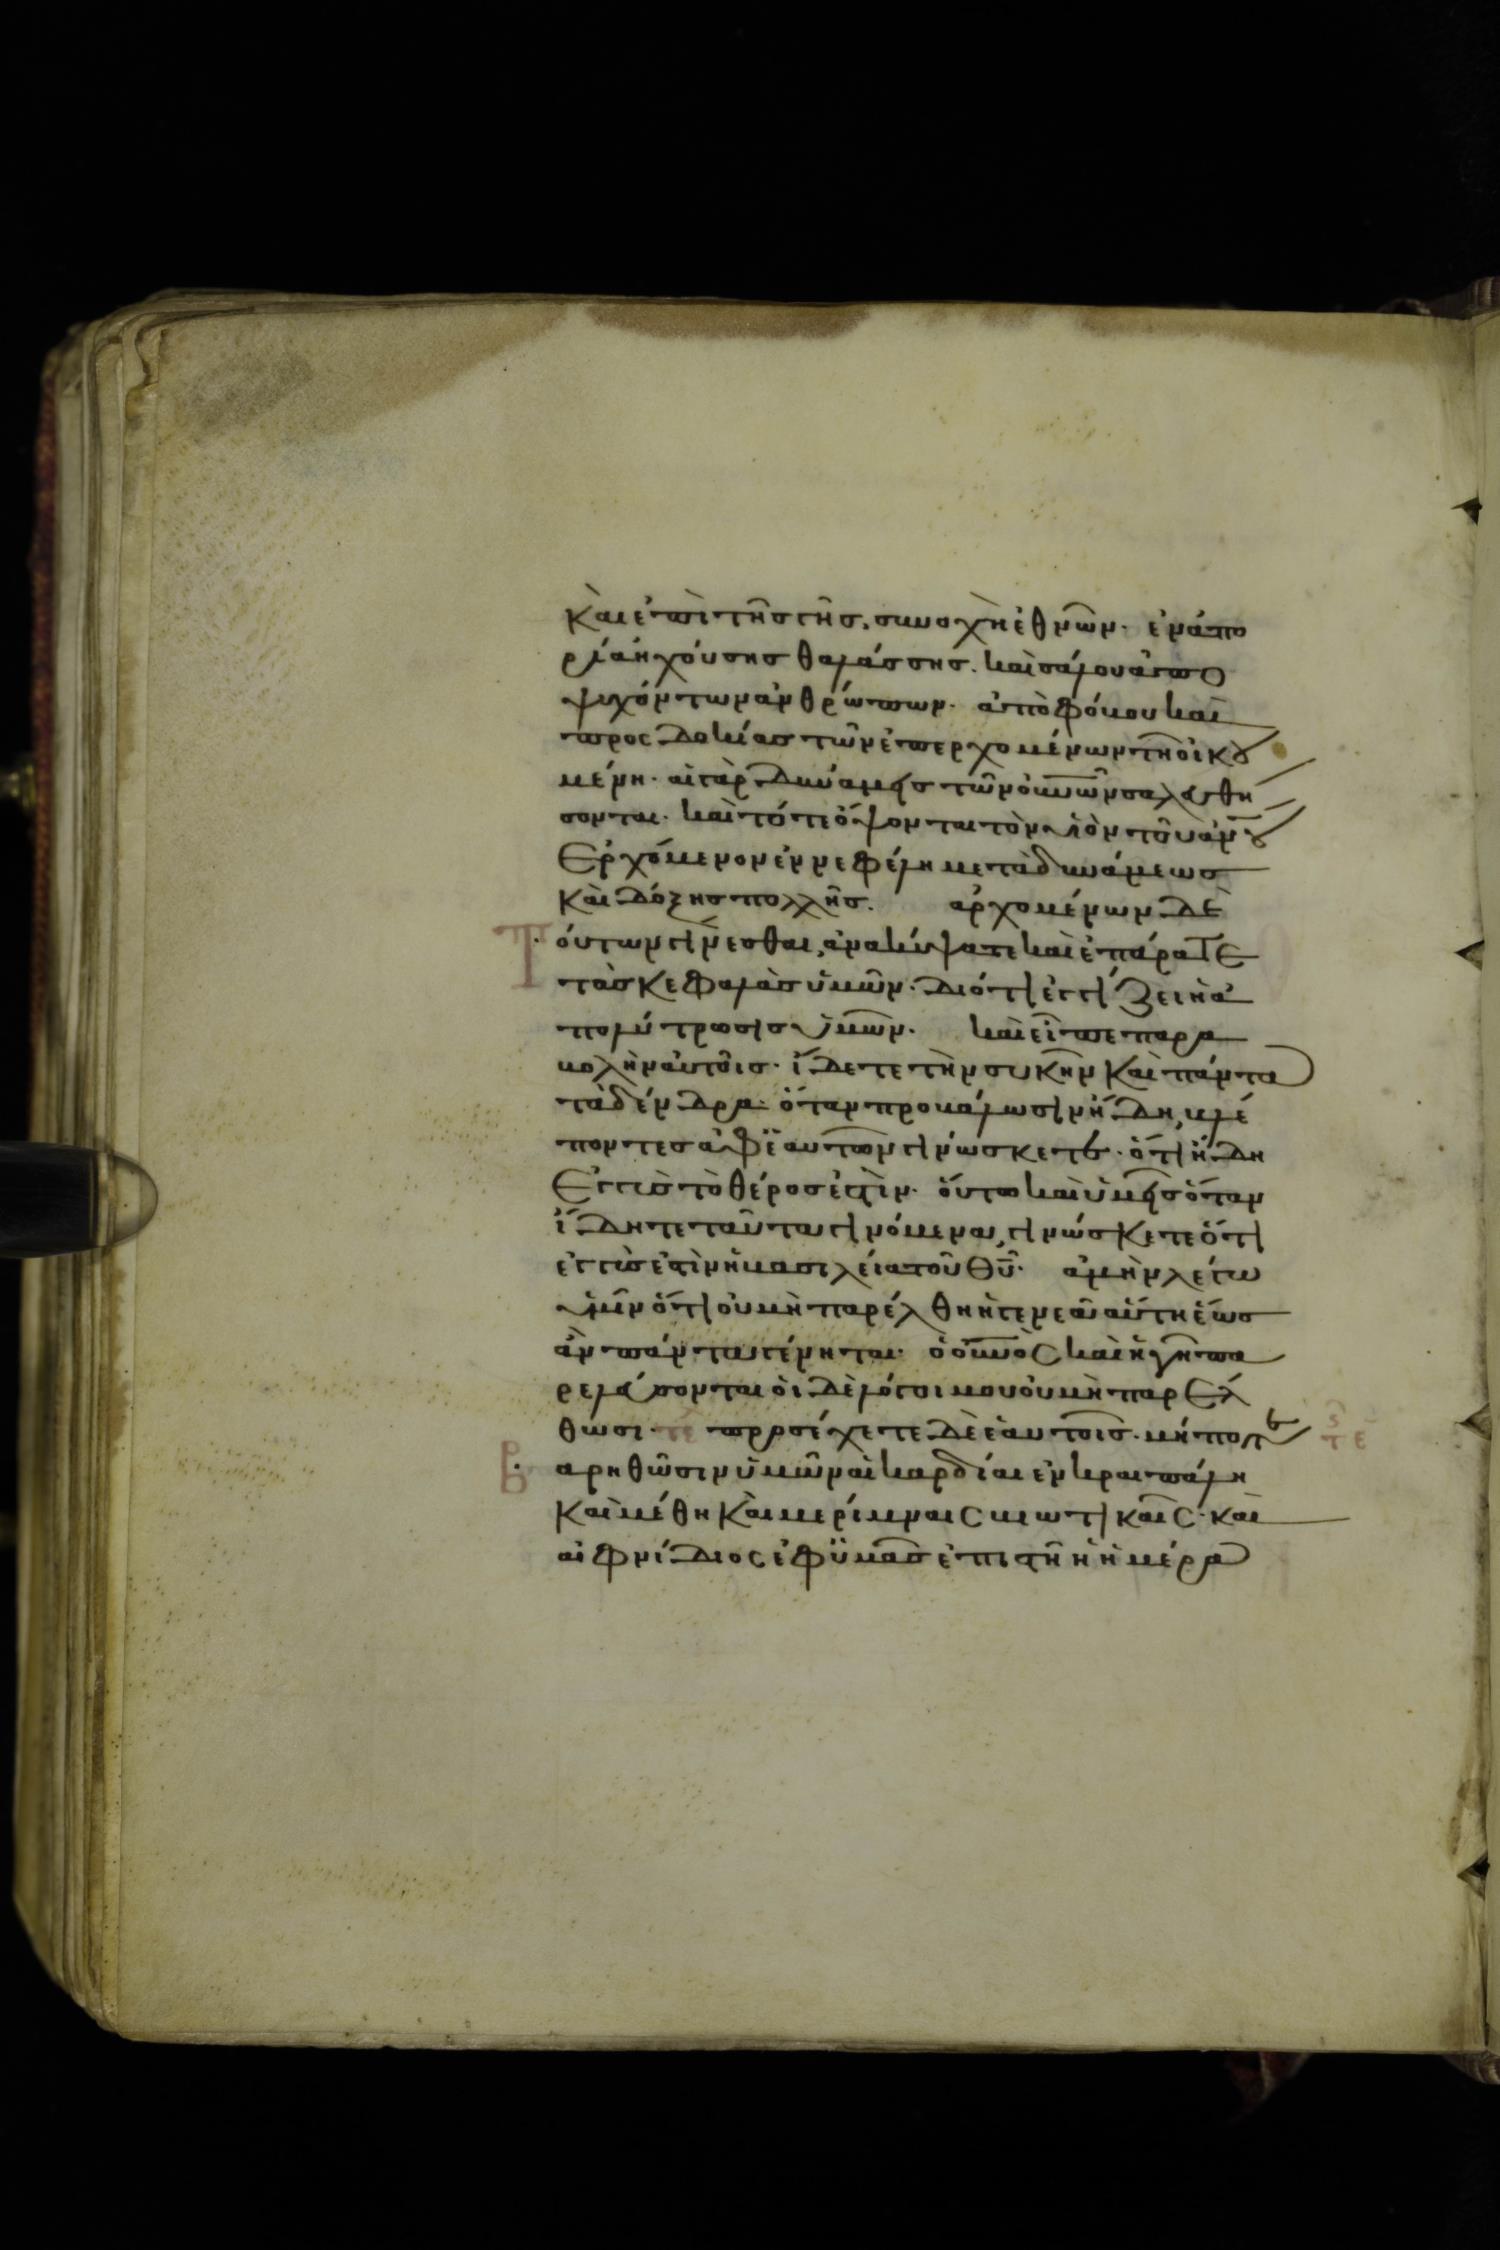 καὶ ἐπὶ τῆς γῆς, συνοχὴ ἐθνῶν· ἐν ἀπο
ρία ἠχούσης θαλάσσης. καὶ σάλου ἀπο
ψυχόντων ἀνθρώπων· ἀπὸ φόβου καὶ
προσδοκίας τῶν ἐπερχομένων τῆ οἰκου
μένη· αἱ γὰρ δυνάμεις τῶν οὐνῶν σαλευθή
σονται· καὶ τότε ὄψονται τὸν υἱὸν τοῦ ἀνου
ἐρχόμενον ἐν νεφέλη μετὰ δυνάμεως
καὶ δόξης πολλῆς. ἀρχομένων δὲ
τούτων γίνεσθαι, ἀνακύψατε καὶ ἐπάρατε
τὰς κεφαλὰς ὑμῶν· διότι ἐγγίζει ἡ ἀ
πολύτρωσις ὑμῶν. καὶ εἶπε παρα
βολὴν αὐτοῖς· ἴδετε τὴν συκῆν καὶ πάντα
τὰ δένδρα· ὅταν προβάλωσιν ἤδη, βλέ
ποντες ἀφ' ἑαυτῶν γινώσκετε· ὅτι ἤδη
ἐγγὺς τὸ θέρος ἐστὶν· οὕτω καὶ ὑμεῖς ὅταν
ἴδητε ταῦτα γινόμενα, γινώσκετε ὅτι
ἐγγύς ἐστὶν ἡ βασιλεία τοῦ θυ· ἀμὴν λέγω
ὑμῖν ὅτι οὐ μὴ παρέλθη ἡ γενεὰ αὕτη ἕως
ἂν πάντα γένηται· ὁ οὐνὸς καὶ ἡ γῆ πα
ρελεύσονται οἱ δὲ λόγοι μου οὐ μὴ παρέλ
θωσι· τε προσέχετε δὲ ἑαυτοῖς· μήποτε
βαρηθῶσιν ὑμῶν αἱ καρδίαι ἐν κραιπάλη
καὶ μέθη καὶ μερίμναις βιωτικαῖς· καὶ
αἰφνίδιος ἐφ' ὑμᾶς ἐπιστῆ ἡ ἡμέρα